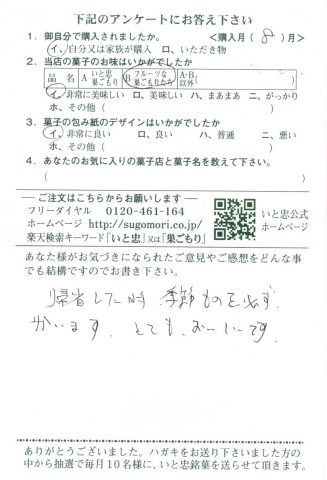 下記のアンケートにお答え下さい
1. 御自分で購入されましたか。 <購入月( 8 )月>
イ、自分又は家族が購入 ロ、いただき物
2. 当店の菓子のお味はいかがでしたか
品 名 A いと忠巣ごもり B フルーツな巣ごもりたち A・B以外( )
イ、非常に美味しい ロ、美味しい ハ、まぁまぁ ニ、がっかり
ホ、その他( )
3. 菓子の包み紙のデザインはいかがでしたか
イ、非常に良い ロ、良い ハ、普通 ニ、悪い
ホ、その他( )
4. あなたのお気に入りの菓子店と菓子名を教えて下さい。
( )
―ご注文はこちらからお願いします―
フリーダイヤル 0120-461-164
ホームページ http://sugomori.co.jp/
楽天検索キーワード「いと忠」又は「巣ごもり」
いと忠公式
ホームページ
あなた様がお気づきになられたご意見やご感想をどんな事
でも結構ですのでお書き下さい。
帰省した時 季節ものを必ず
かいます。とても、おーいしです。
ありがとうございました。ハガキをお送り下さいました方の
中から抽選で毎月10名様に、いと忠銘菓を送らせて頂きます。